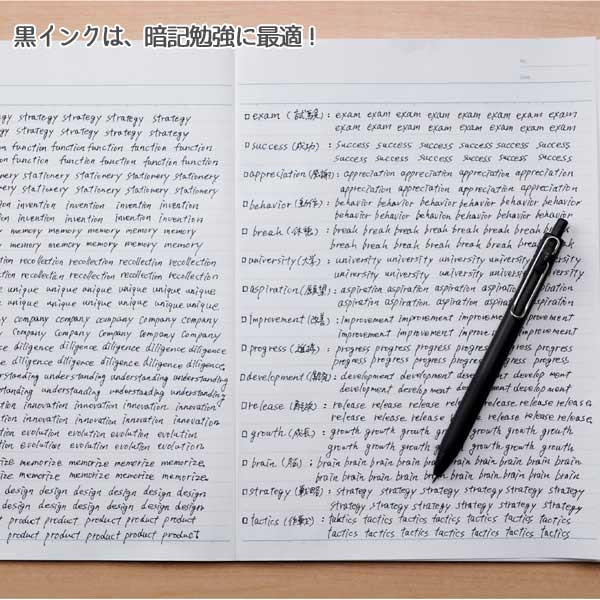 黒インクは、暗記勉強に最適！
gy strategy strategy strategy strategy
strategy strategy strategy strategy
function function function function function
function function function function
stationery stationery stationery stationery
stationery stationery stationery stationery
invention invention invention invention
invention invention invention invention
memory memory memory memory memory
memory memory memory memory memory
recollection recollection recollection
recollection recollection recollection
unique unique unique unique unique
unique unique unique unique unique
company company company company
company company company company
diligence diligence diligence diligence
diligence diligence diligence
understanding understanding understanding
understanding understanding understanding
innovation innovation innovation
innovation innovation innovation
evolution evolution evolution evolution
evolution evolution evolution evolution
memorize memorize memorize
memorize memorize memorize memorize
design design design design design
design design design design design
product product product product product
product product product product product
No.
Date
□ exam (試験) : exam exam exam exam exam exam exam exam
exam exam exam exam exam exam exam exam
□ success (成功) : success success success success success
success success success success success
□ appreciation (感謝) : appreciation appreciation appreciation appreciation
appreciation appreciation appreciation appreciation
□ behavior : behavior behavior behavior behavior behavior
behavior behavior behavior behavior behavior
□ break (休憩) : break break break break break break break
break break break break break break break
□ university (大学) : university university university university
university university university university
□ aspiration (願望) : aspiration aspiration aspiration aspiration
aspiration aspiration aspiration aspiration
□ Improvement (改善) : improvement improvement improvement improvement
improvement improvement improvement improvement
□ progress (進歩) : progress progress progress progress progress
progress progress progress progress progress
□ development (開発) : development development development
development development development
□ release (解放) : release release release release release release
release release release release release release
□ growth (成長) : growth growth growth growth growth growth
growth growth growth growth growth growth
□ brain (脳) : brain brain brain brain brain brain brain brain
brain brain brain brain brain brain brain brain
□ strategy (戦略) : strategy strategy strategy strategy strategy
strategy strategy strategy strategy strategy
□ tactics (作戦) : tactics tactics tactics tactics tactics tactics
tactics tactics tactics tactics tactics tactics